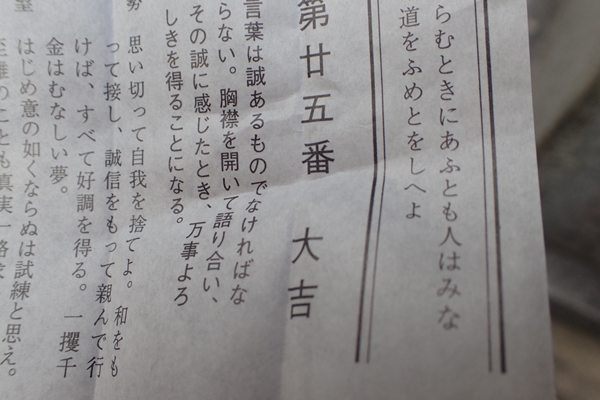 らむときにあふとも人はみな
道をふめとをしへよ
第廿五番 大吉
言葉は誠あるものでなければな
らない。胸襟を開いて語り合い、
その誠に感じたとき、万事よろ
しきを得ることになる。
勢 思い切って自我を捨てよ。和をも
って接し、誠信をもって親んで行
けば、すべて好調を得る。一攫千
金はむなしい夢。
はじめ意の如くならぬは試練と思え。
のことも真実一路